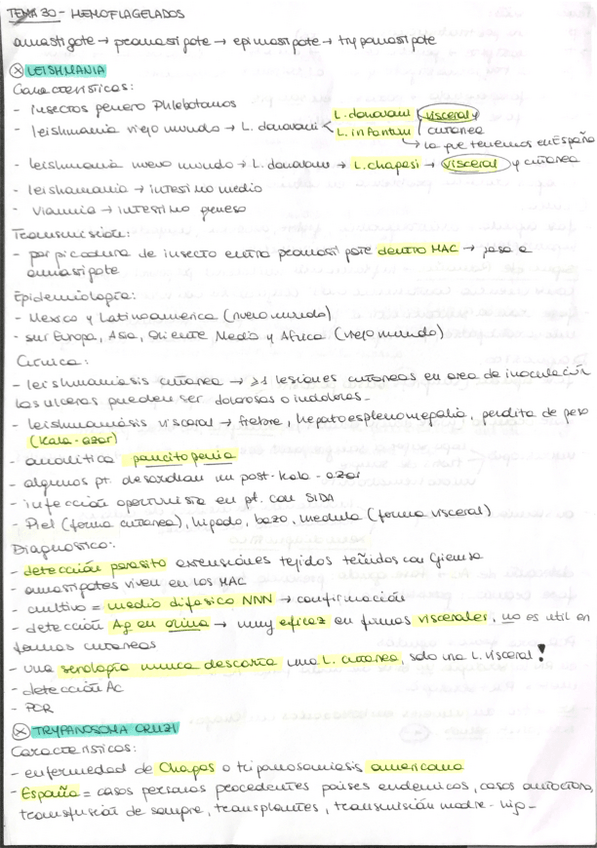 TEMA 30 - HEMOFLAGELADOS
amastigote → promastigote → epimastigote → trypomastigote
LEISHMANIA
Características:
- insectos genero Phlebotomus
- leishmania viejo mundo → L. donovani < L. donovani L. infantum visceral y cutanea
→ la que tenemos en España
- leishmania nuevo mundo → L. donovani → L. chagasi → visceral y cutanea
- leishmania → intestino medio
- viannia → intestino grueso
Transmisión:
- por picadura de insecto entra promastigote dentro MAC → pasa a
amastigote
Epidemiología:
- Mexico y Latinoamerica (nuevo mundo)
- sur Europa, Asia, Oriente Medio y Africa (viejo mundo)
Clínica:
- leishmaniasis cutanea → ≥1 lesiones cutaneas en area de inoculación
las ulceras pueden ser dolorosas o indoloras.
- leishmaniasis visceral → fiebre, hepatoesplenomegalia, perdida de peso
(kala-azar)
- analitica pancitopenia
- algunos pt. desarrollan un post-kala-azar
- infección oportunista en pt. con SIDA
- Piel (forma cutanea), higado, bazo, medula (forma visceral)
Diagnostico:
- detección parasito extensiones tejidos teñidos con Giemsa
- amastigotes viven en los MAC
- cultivo = medio difasico NNN → confirmación
- detección Ag en orina → muy eficaz en formas viscerales, no es util en
formas cutaneas
- una serología nunca descarta una L. cutanea, solo una L. visceral!
- detección Ac
- PCR
TRYPANOSOMA CRUZI
Características:
- enfermedad de Chagas o tripanosomiasis americana
- España = casos personas procedentes paises endemicos, casos autoctonos,
transfusión de sangre, transplantes, transmisión madre-hijo-